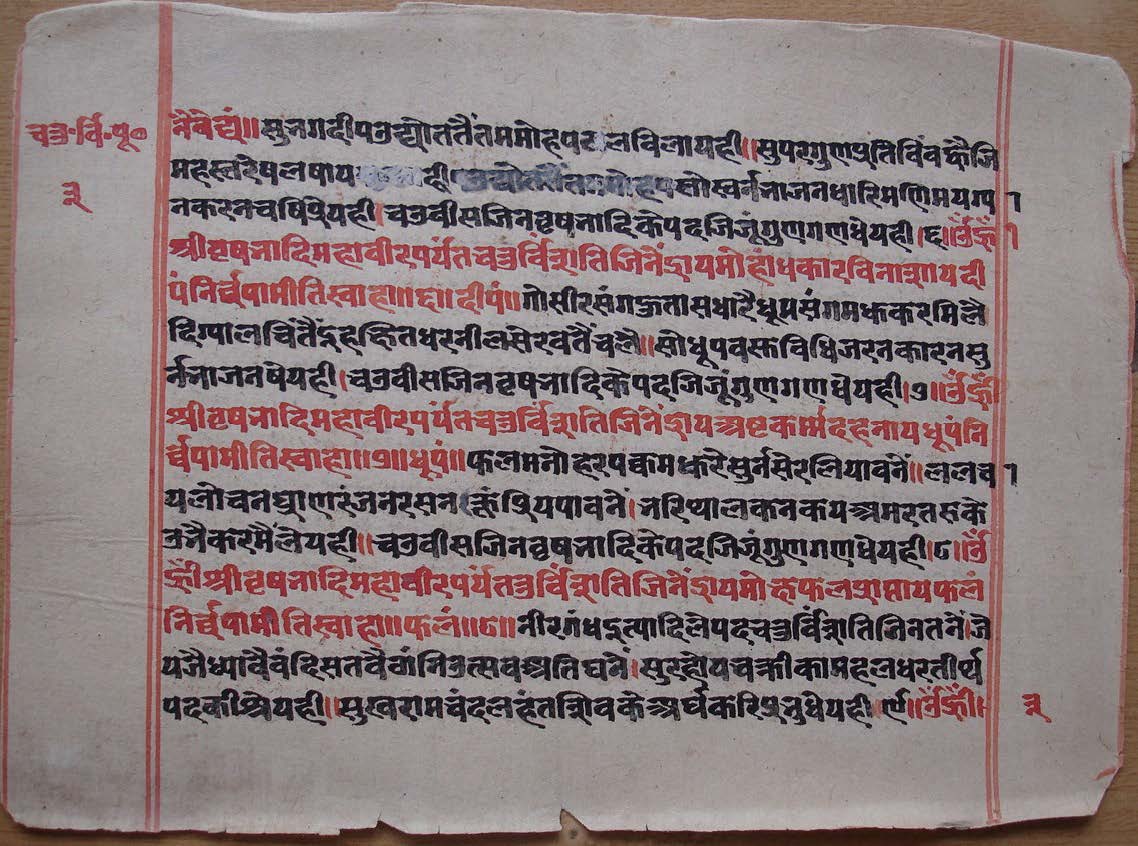 चउ॰र्विं॰पू॰
३
नैवेद्यं॥ सुभगदीपउद्योततैंतममोहपटलविलायही॥सुपरगुणप्रतिविंवकैजि
महस्तरेषलषाय सोस्वर्नभाजनधारिमणिमयगप १
नकरनचषिपेयही।चउवीसजिनवृषभादिकेपदजिजूंगुणगणधेयही।६॥ॐह्रीं १
श्रीवृषभादिमहावीरपर्यंतचतुर्विंशतिजिनेंद्रायमोहांधकारविनाशायदी
पंनिर्वपामीतिस्वाहा॥६॥दीपं॥गोसीरसंगहुतासधारैधूमसंगमककरमिलै
दिग्पालचिंतैंदुहकितधरनीलसेरवतैंचलै॥सोधूपवस्तविधिजरनकारनसु
र्नभाजनषेयही।चउवीसजिनवृषभादिकेपदजिजूंगुणगणधेयही।७॥ॐह्रीं
श्रीवृषभादिमहावीरपर्यंतचतुर्विंशतिजिनेंद्रायअष्टकर्म्मदहनायधूपंनि
र्वपामीतिस्वाहा॥७॥धूपं॥फलमनोहरपक्वमधरेसुर्नसेरलियावनें॥ललव १
यलोचनघ्राणरंजनरसनकूंप्रियपावनें।भरिथालकनकयअमरतरुके
उभैकरमैंलेयही॥चउवीसजिनवृषभादिकेपदजिजूंगुणगणधेयही।८॥ॐ
ह्रींश्रीवृषभादिमहावीरपर्यंतर्विंशतिजिनेंद्रायमोक्षफलप्राप्तायफलं
निर्वपामीतिस्वाहा॥फलं॥८॥नीरगंधइत्यादिलेपदचतुर्विंशतिजिनतनें।जै
यजैध्यावैवंदिसतवैठांनिउत्सवअतिघनें।सुरहोयचक्रीकामहलधरतीर्थ
पदकीश्रेयही॥सुखरामचंदलहंतशिवकेअर्घकरिप्रभुधेयही ९॥ॐह्रीं॥ ३